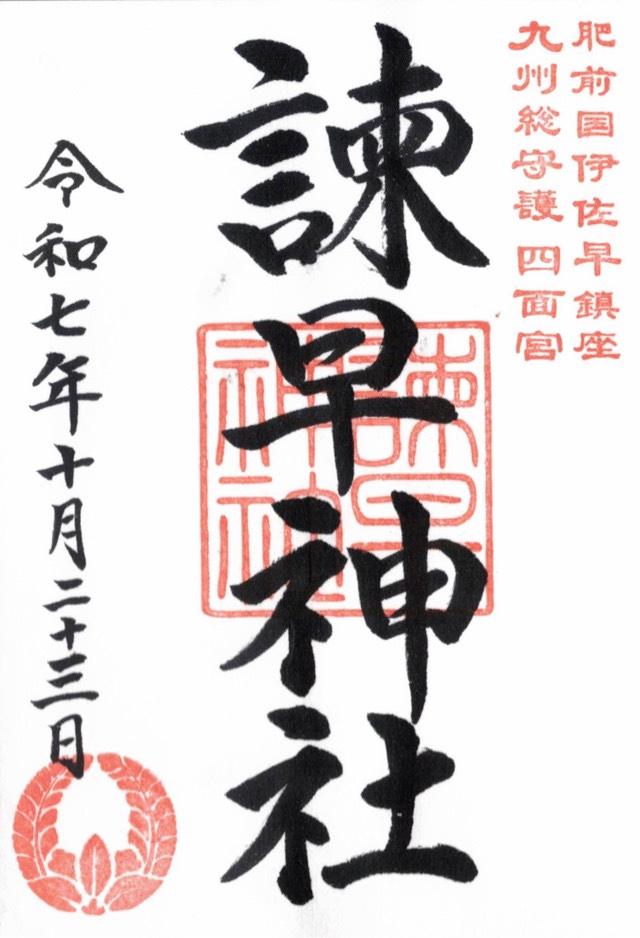 肥前国伊佐早鎮座
九州総守護 四面宮
諫早神社
諫早神社
令和七年十月二十三日